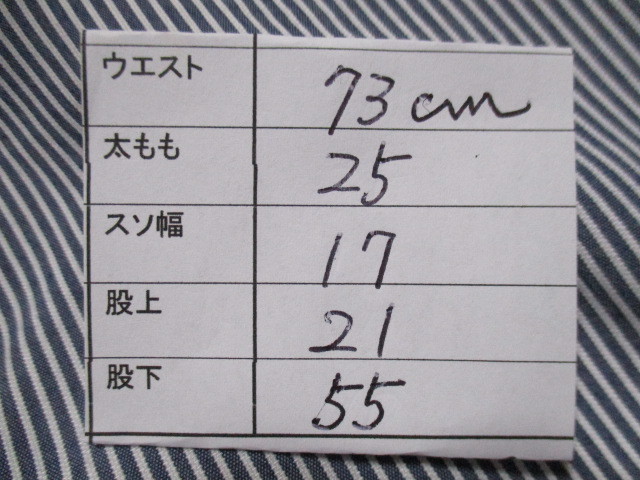 ウエスト 73cm
太もも 25
スソ幅 17
股上 21
股下 55